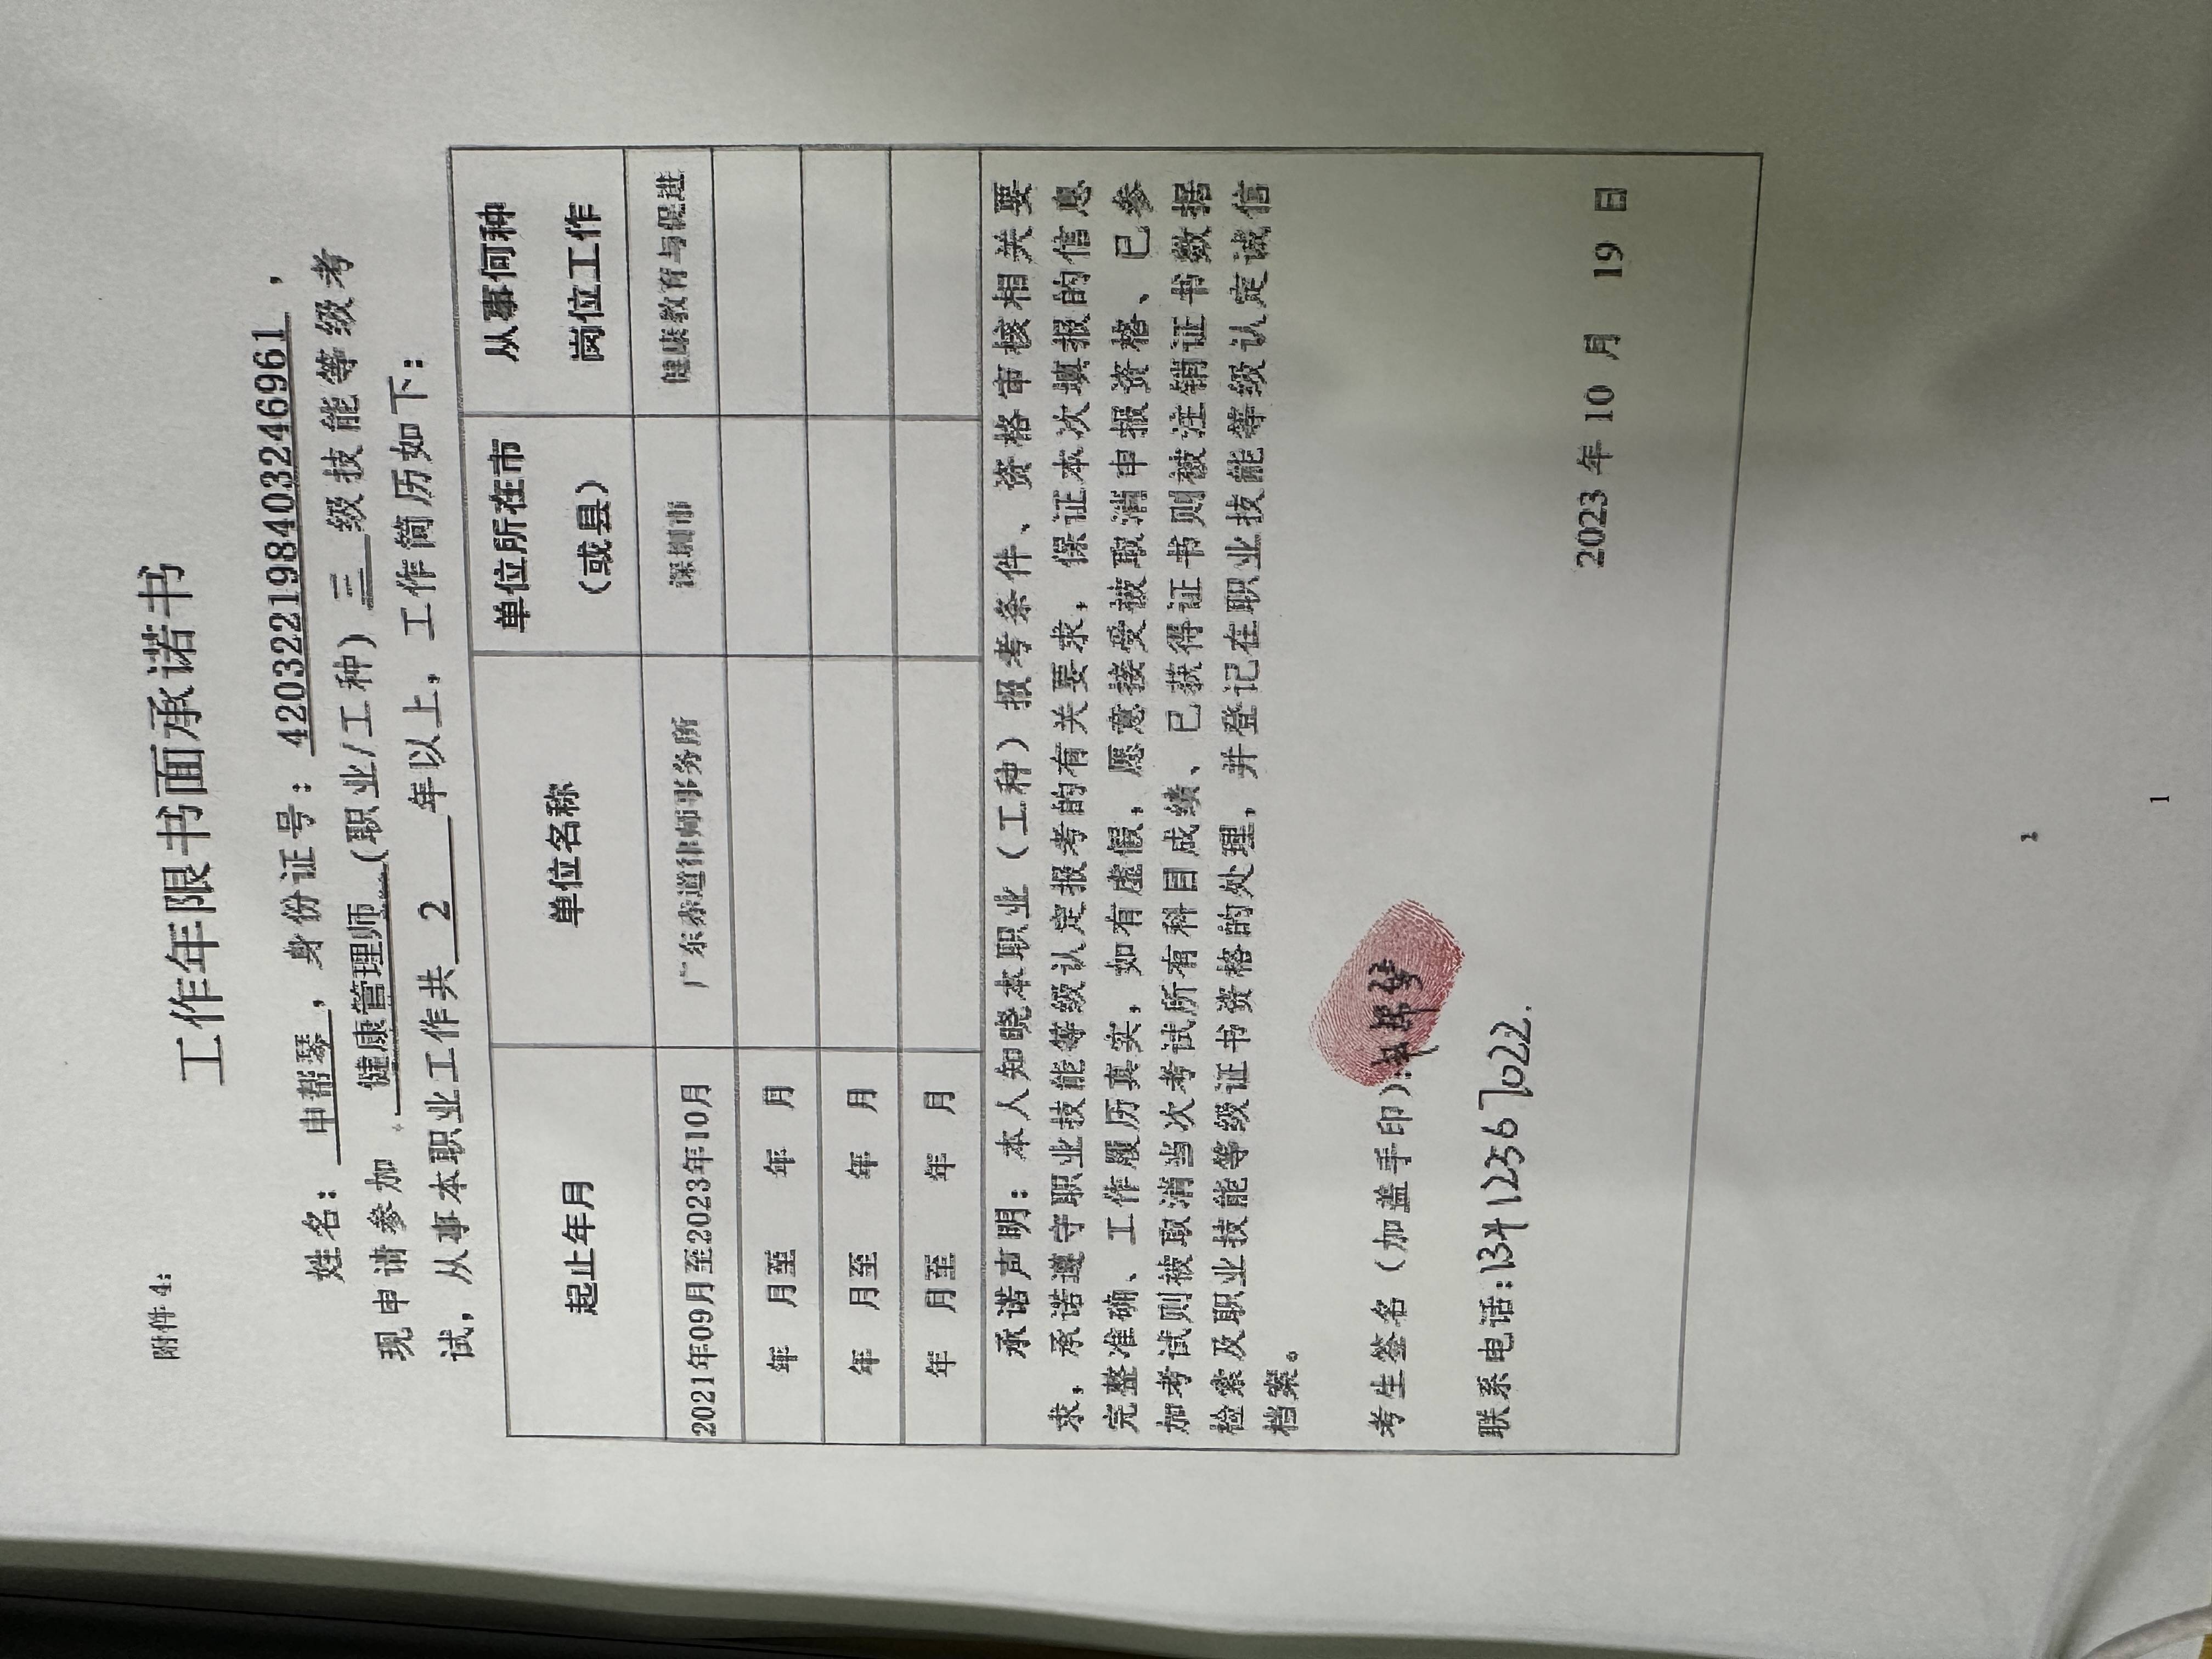 附件4:
工作年限书面承诺书
姓名：申帮琴，身份证号：420322198403246961，
现申请参加 健康管理师（职业/工种）三级技能等级考
试，从事本职业工作共 2 年以上，工作简历如下：
起止年月 单位名称 单位所在市（或县） 从事何种岗位工作
2021年09月至2023年10月 广东赤道律师事务所 深圳市 健康教育与促进
年 月至 年 月
年 月至 年 月
年 月至 年 月
承诺声明：本人知晓本职业（工种）报考条件、资格审核相关要
求，承诺遵守职业技能等级认定报考的有关要求，保证本次填报的信息
完整准确、工作履历真实，如有虚假，愿意接受被取消申报资格、已参
加考试则被取消当次考试所有科目成绩、已获得证书则被注销证书数据
检索及职业技能等级证书资格的处理，并登记在职业技能等级认定诚信
档案。
考生签名（加盖手印）：
联系电话：13412567022.
2023年10 月 19 日
1
1